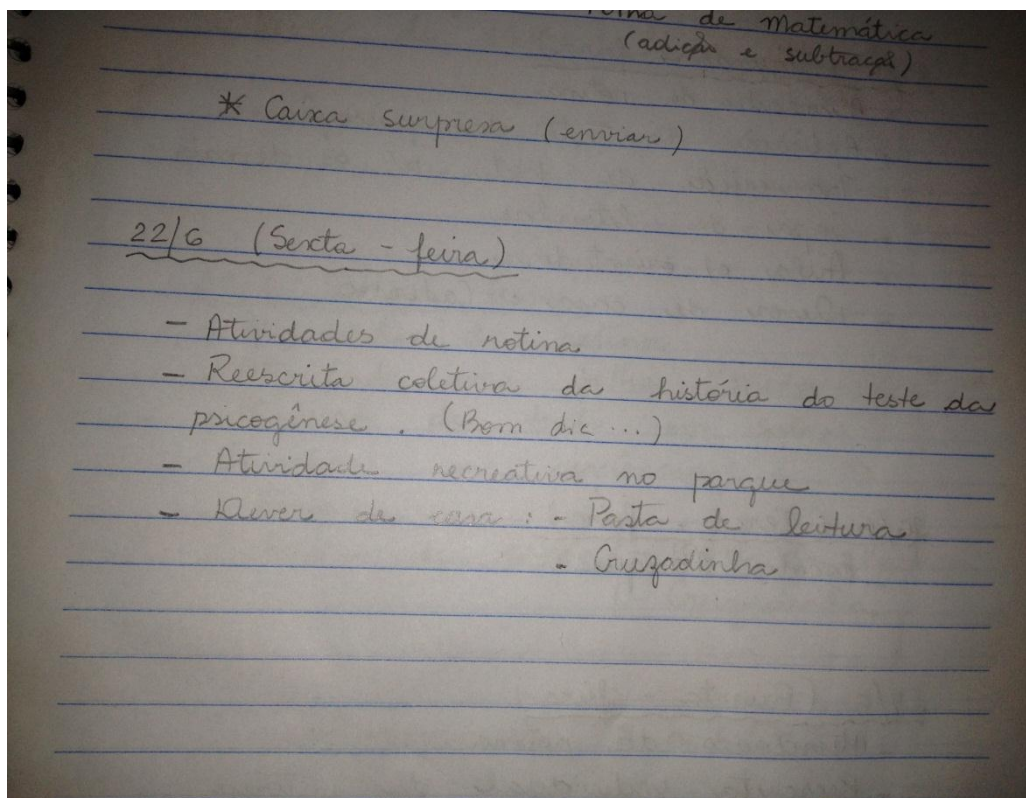 de Matemática
(adição e subtração)
* Caixa surpresa (enviar)
22/6 (Sexta-feira)
- Atividades de rotina
- Reescrita coletiva da história do teste da
psicogênese. (Bom dia...)
- Atividade recreativa no parque
- Dever de casa: - Pasta de leitura
- Cruzadinha